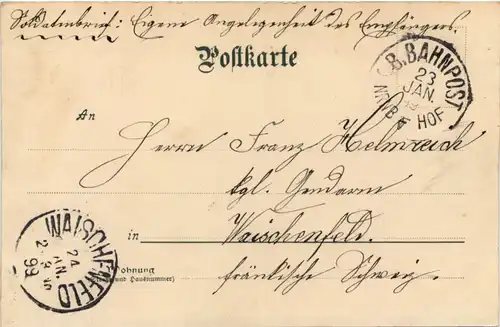 Soldatenbrief: Eigene Angelegenheit des Empfängers.
Postkarte
K.B. BAHNPOST
23
JAN.
HOF
An
Herrn Franz Helmreich
kgl. Gendarm
in Waischenfeld.
fränkische Schweiz.
WAISCHENFELD
24
JAN.
99
Wohnung
(Straße und Hausnummer)